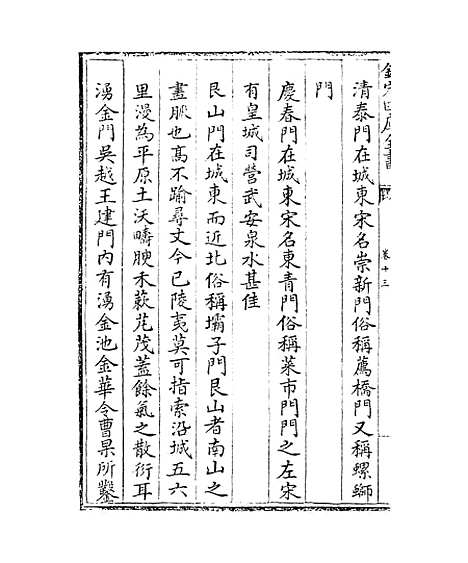 欽定四庫全書
卷十三
清泰門在城東宋名崇新門俗稱薦橋門又稱螺螄
門
慶春門在城東宋名東青門俗稱菜市門門之左宋
有皇城司營武安泉水甚佳
艮山門在城東而近北俗稱壩子門艮山者南山之
盡脈也高不踰尋丈今已陵夷莫可指索沿城五六
里漫為平原土沃疇腴禾蔌芃茂蓋餘氣之散衍耳
湧金門吳越王建門內有湧金池金華令曹杲所鑿